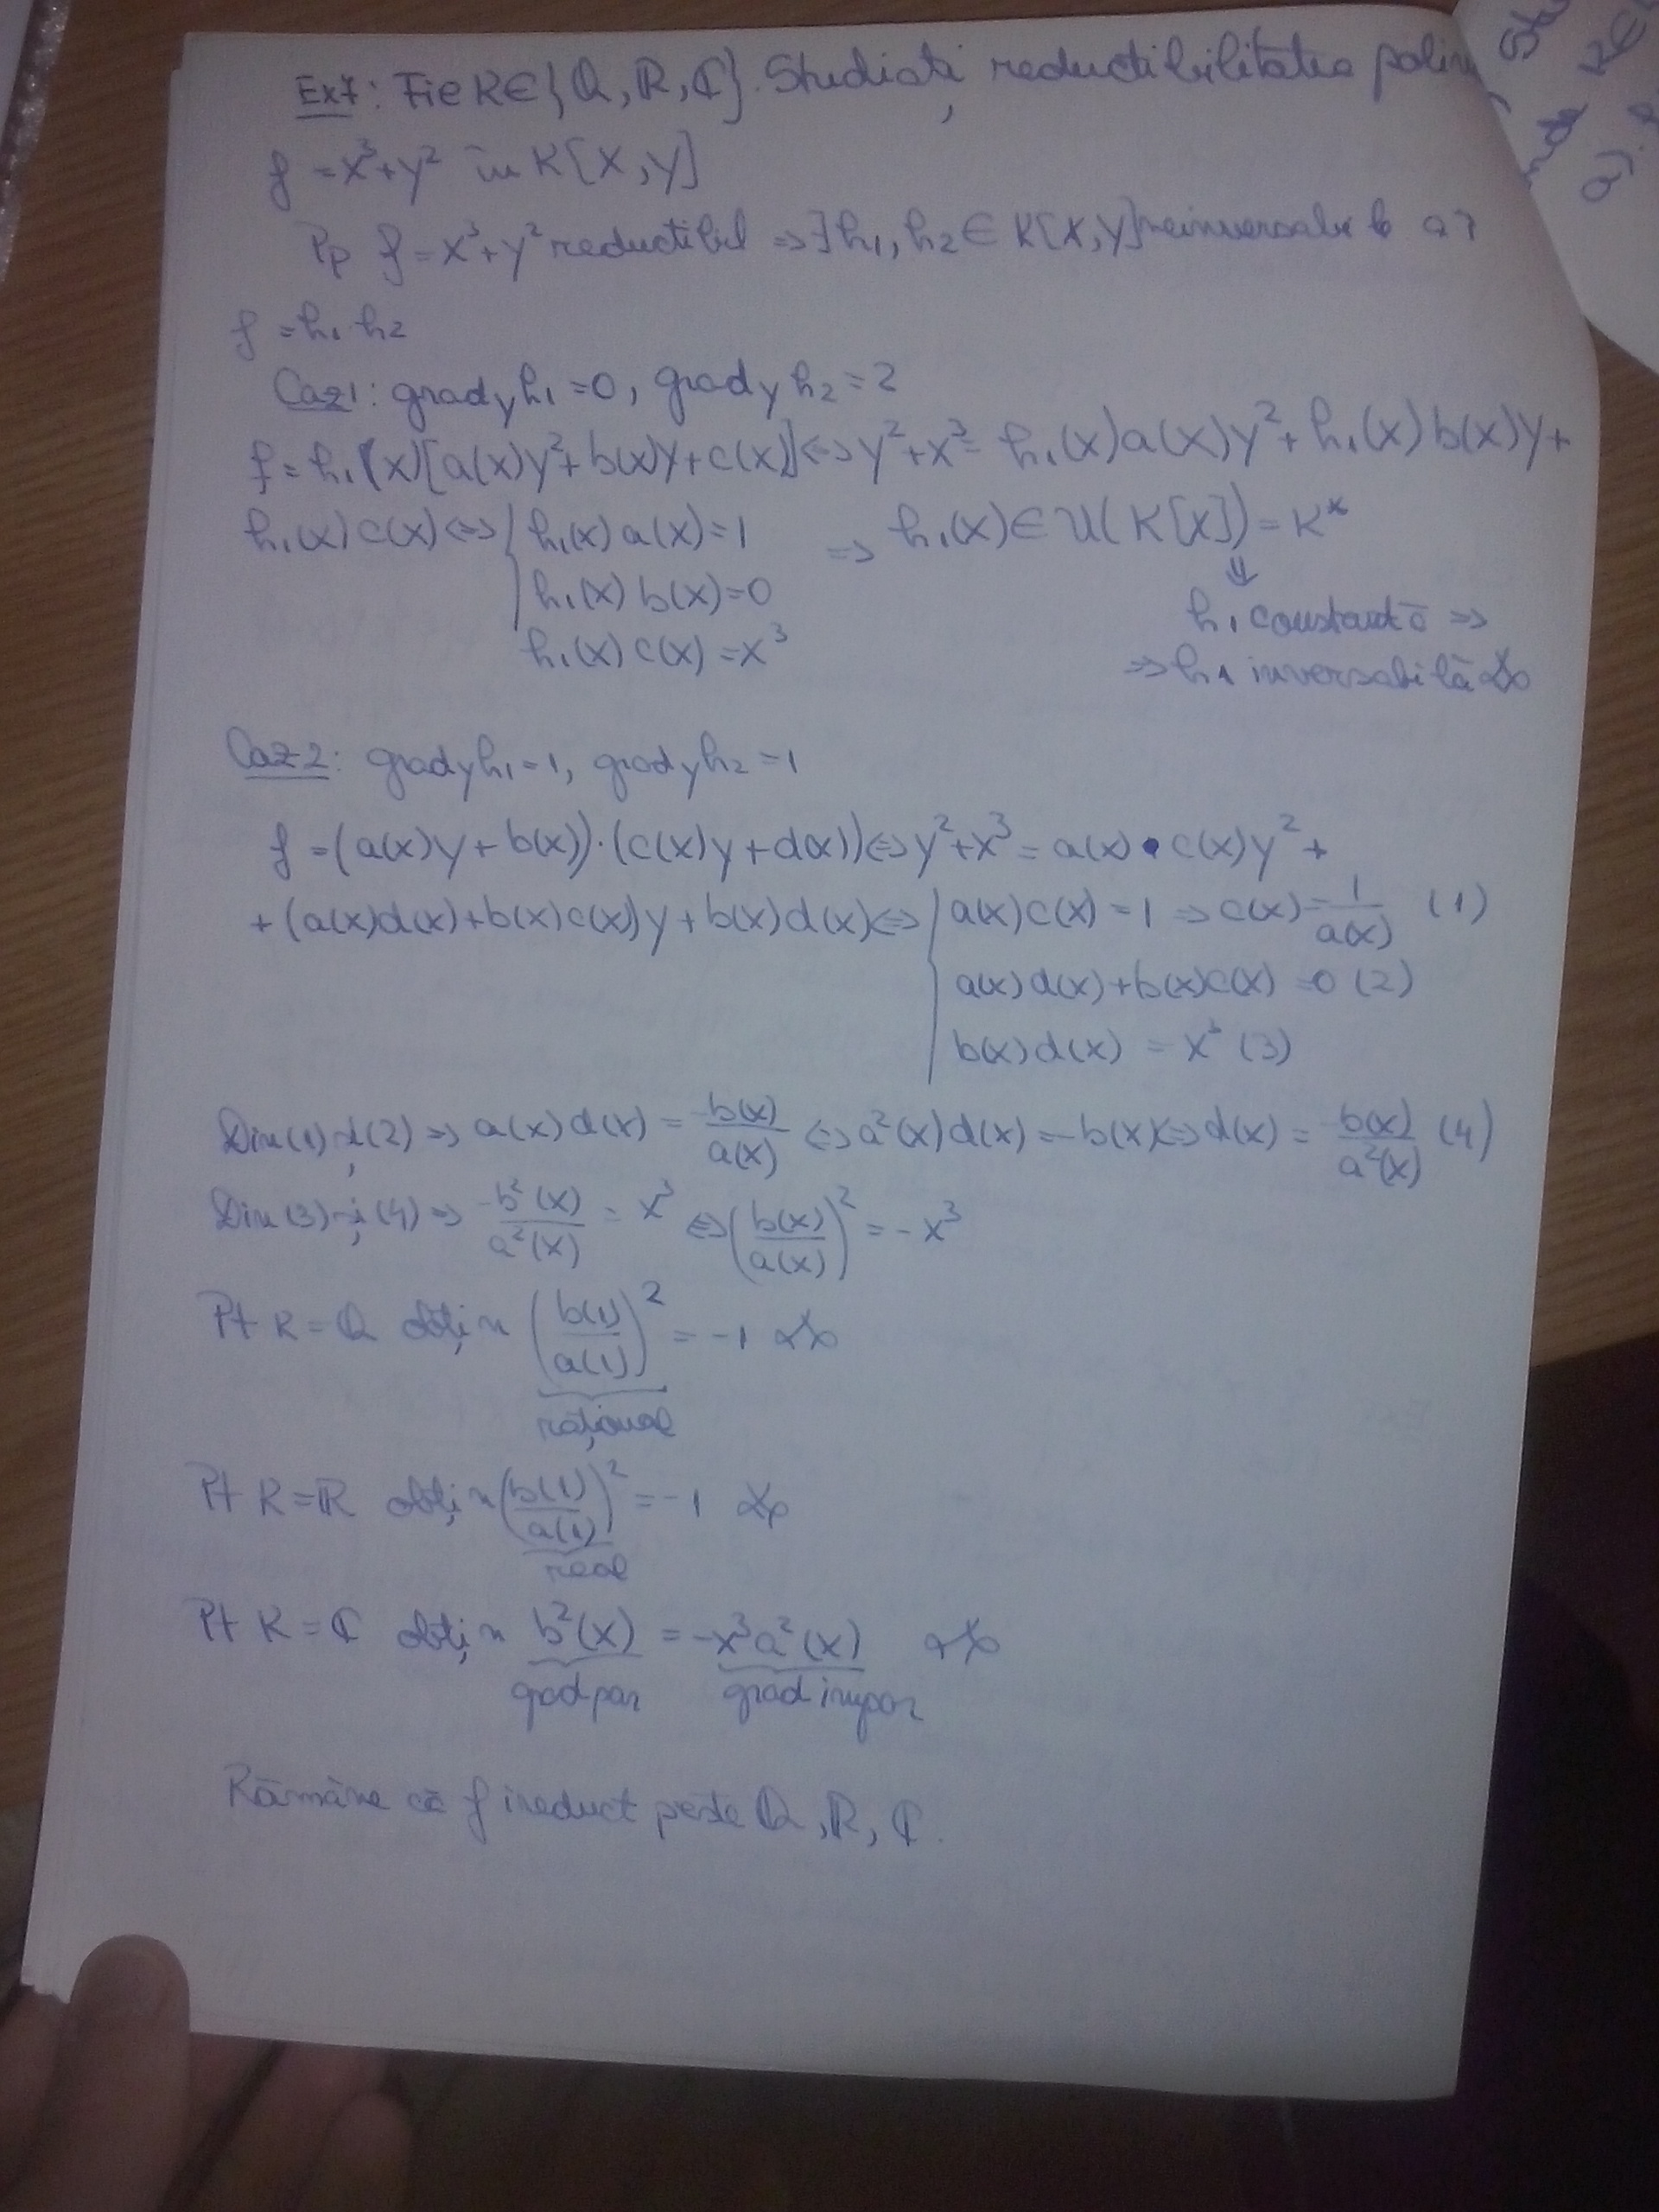 Ex7: Fie K∈{Q, R, C}. Studiați reductibilitatea polin
f = x³+y² în K[X,Y]
Pp f = x³+y² reductibil => ∃ h₁, h₂ ∈ K[X,Y] neinversabile a.î
f = h₁ h₂
Caz1: grad_y h₁ = 0, grad_y h₂ = 2
f = h₁(x)[a(x)y²+b(x)y+c(x)] <=> y²+x³ = h₁(x)a(x)y² + h₁(x)b(x)y +
h₁(x)c(x) <=> { h₁(x)a(x)=1 => h₁(x) ∈ U(K[X]) = K*
h₁(x)b(x)=0 ⇓
h₁(x)c(x)=x³ h₁ constantă =>
=> h₁ inversabilă
Caz2: grad_y h₁=1, grad_y h₂=1
f = (a(x)y+b(x))·(c(x)y+d(x)) <=> y²+x³ = a(x)·c(x)y² +
+(a(x)d(x)+b(x)c(x))y + b(x)d(x) <=> { a(x)c(x) = 1 => c(x) = 1/a(x) (1)
a(x)d(x)+b(x)c(x) = 0 (2)
b(x)d(x) = x³ (3)
Din (1) și (2) => a(x)d(x) = -b(x)/a(x) <=> a²(x)d(x) = -b(x) <=> d(x) = -b(x)/a²(x) (4)
Din (3) și (4) => -b²(x)/a²(x) = x³ <=> (b(x)/a(x))² = -x³
Pt K = Q obțin (b(1)/a(1))² = -1
rațional
Pt K = R obțin (b(1)/a(1))² = -1
real
Pt K = C obțin b²(x) = -x³a²(x)
grad par grad impar
Rămâne că f ireduct peste Q, R, C.